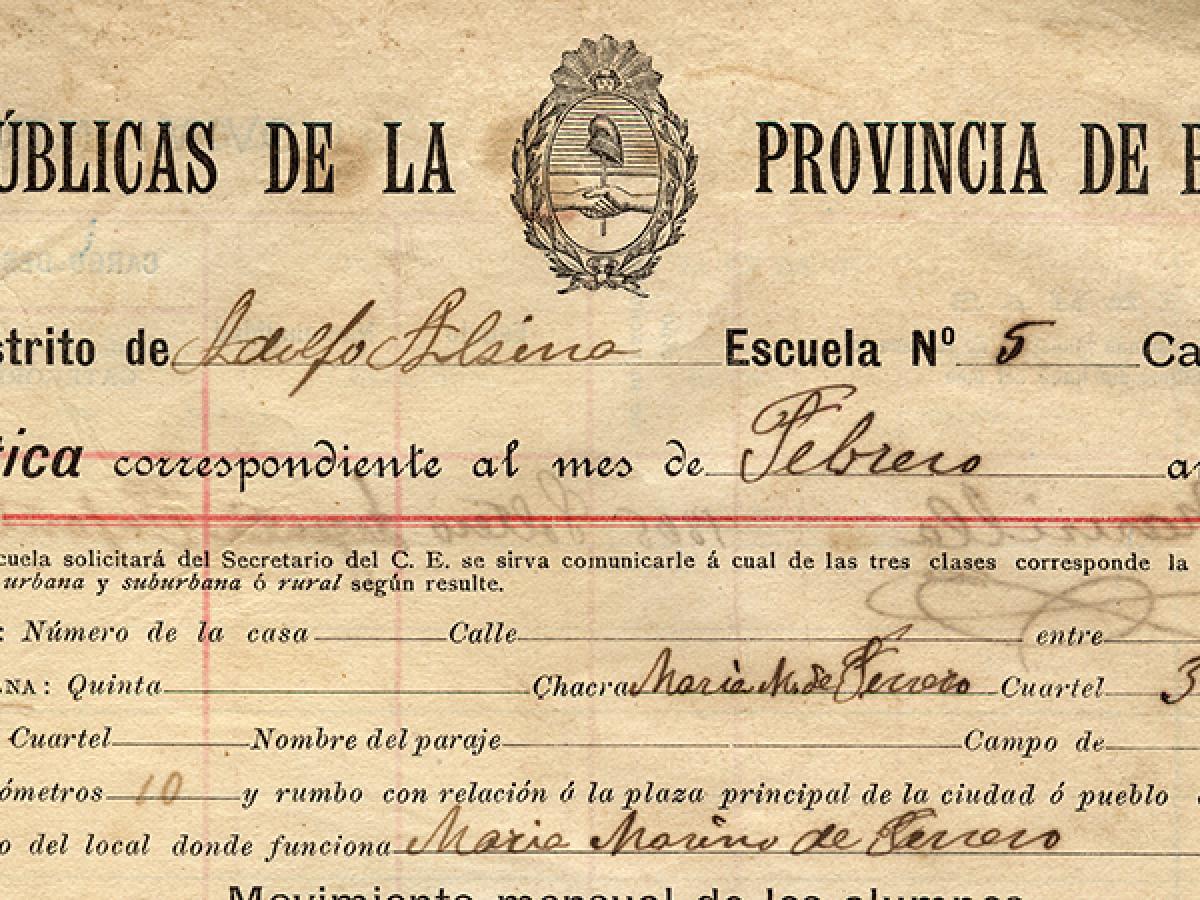 ÚBLICAS DE LA PROVINCIA DE
strito de Adolfo Alsina Escuela Nº 5 Ca
tica correspondiente al mes de Febrero a
cuela solicitará del Secretario del C. E. se sirva comunicarle á cual de las tres clases corresponde la
urbana y suburbana ó rural según resulte.
: Número de la casa Calle entre
NA: Quinta Chacra Maria M. de Ferrero Cuartel 3
Cuartel Nombre del paraje Campo de
ómetros 10 y rumbo con relación ó la plaza principal de la ciudad ó pueblo
o del local donde funciona Maria Marino de Ferrero
Movimiento mensual de los alumnos